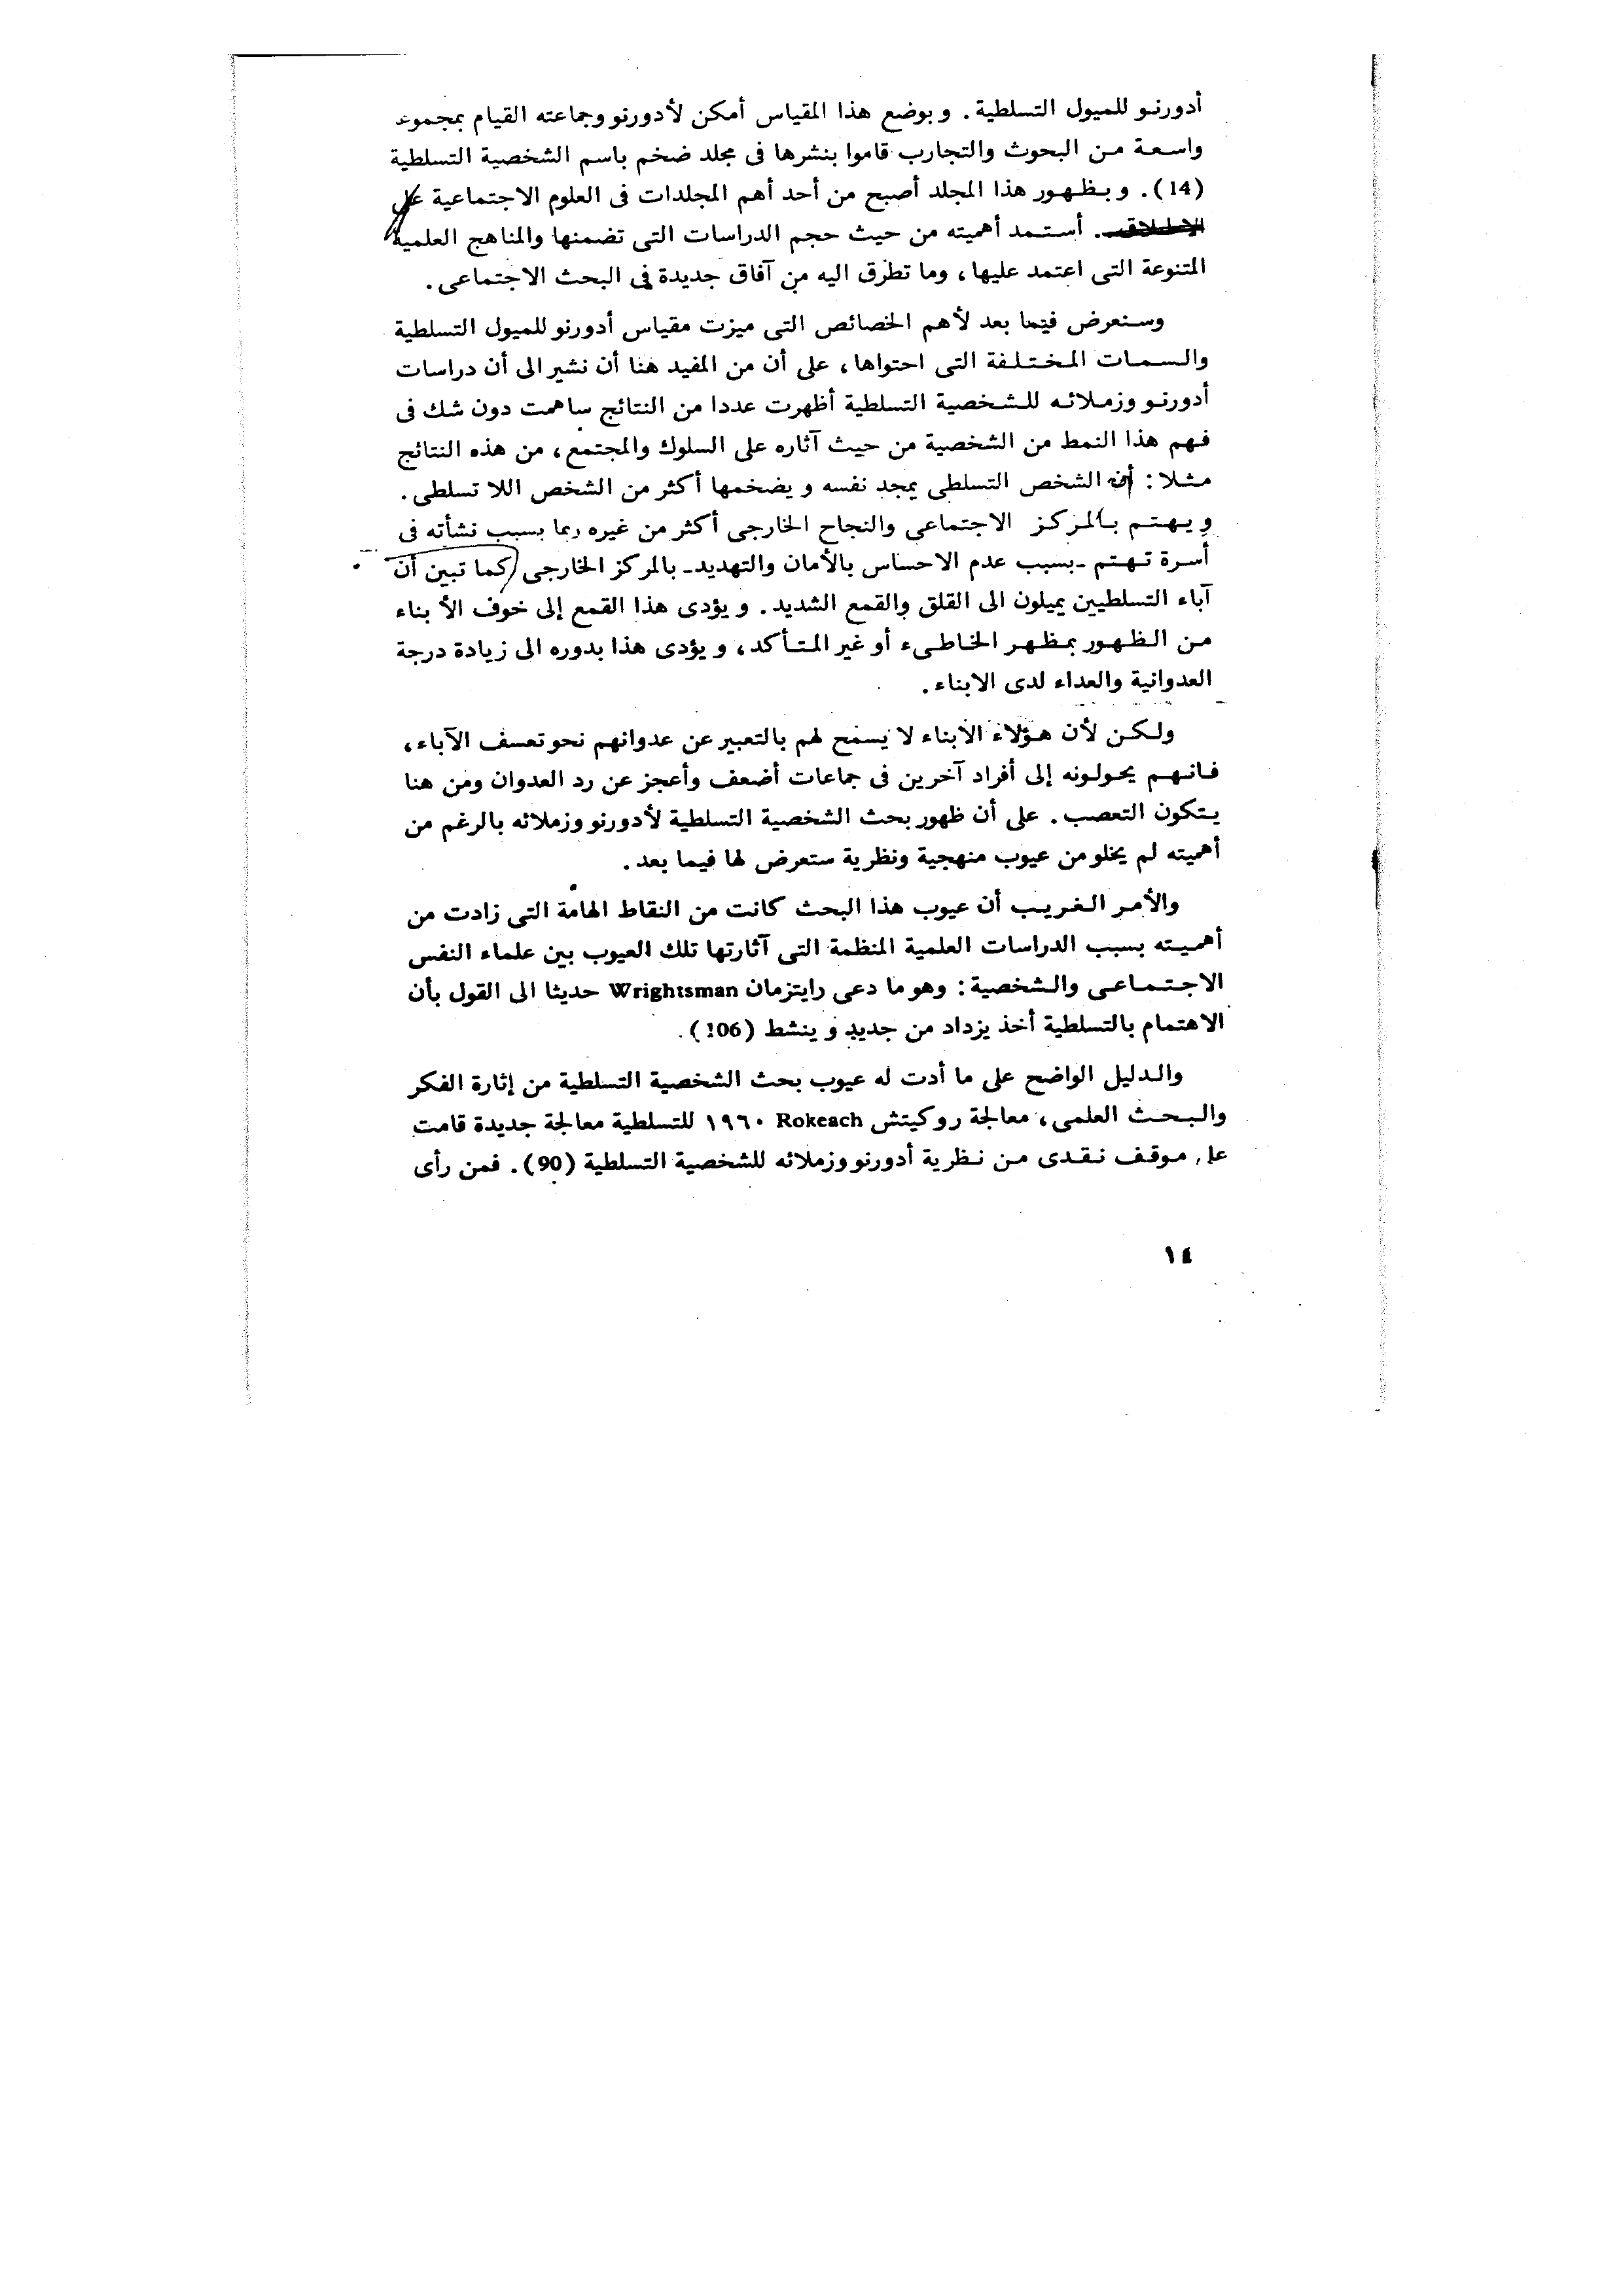 أدورنو للميول التسلطية. وبوضع هذا المقياس أمكن لأدورنو وجماعته القيام بمجموعة
واسعة من البحوث والتجارب قاموا بنشرها فى مجلد ضخم باسم الشخصية التسلطية
(14). وبظهور هذا المجلد أصبح من أحد أهم المجلدات فى العلوم الاجتماعية على
الاطلاق. أستمد أهميته من حيث حجم الدراسات التى تضمنها والمناهج العلمية
المتنوعة التى اعتمد عليها، وما تطرق اليه من آفاق جديدة فى البحث الاجتماعى.
وسنعرض فيما بعد لأهم الخصائص التى ميزت مقياس أدورنو للميول التسلطية
والسمات المختلفة التى احتواها، على أن من المفيد هنا أن نشير الى أن دراسات
أدورنو وزملائه للشخصية التسلطية أظهرت عددا من النتائج ساهمت دون شك فى
فهم هذا النمط من الشخصية من حيث آثاره على السلوك والمجتمع، من هذه النتائج
مثلا: أن الشخص التسلطى يمجد نفسه ويضخمها أكثر من الشخص اللا تسلطى.
ويهتم بالمركز الاجتماعى والنجاح الخارجى أكثر من غيره ربما بسبب نشأته فى
أسرة تهتم -بسبب عدم الاحساس بالأمان والتهديد- بالمركز الخارجى كما تبين أن
آباء التسلطيين يميلون الى القلق والقمع الشديد. ويؤدى هذا القمع إلى خوف الأبناء
من الظهور بمظهر الخاطىء أو غير المتأكد، ويؤدى هذا بدوره الى زيادة درجة
العدوانية والعداء لدى الابناء.
ولكن لأن هؤلاء الأبناء لا يسمح لهم بالتعبير عن عدوانهم نحو تعسف الآباء،
فانهم يحولونه إلى أفراد آخرين فى جماعات أضعف وأعجز عن رد العدوان ومن هنا
يتكون التعصب. على أن ظهور بحث الشخصية التسلطية لأدورنو وزملائه بالرغم من
أهميته لم يخلو من عيوب منهجية ونظرية ستعرض لها فيما بعد.
والأمر الغريب أن عيوب هذا البحث كانت من النقاط الهامة التى زادت من
أهميته بسبب الدراسات العلمية المنظمة التى آثارتها تلك العيوب بين علماء النفس
الاجتماعى والشخصية: وهو ما دعى رايتزمان Wrightsman حديثا الى القول بأن
الاهتمام بالتسلطية أخذ يزداد من جديد وينشط (106).
والدليل الواضح على ما أدت له عيوب بحث الشخصية التسلطية من إثارة الفكر
والبحث العلمى، معالجة روكيتش Rokeach ١٩٦٠ للتسلطية معالجة جديدة قامت
على موقف نقدى من نظرية أدورنو وزملائه للشخصية التسلطية (90). فمن رأى
١٤